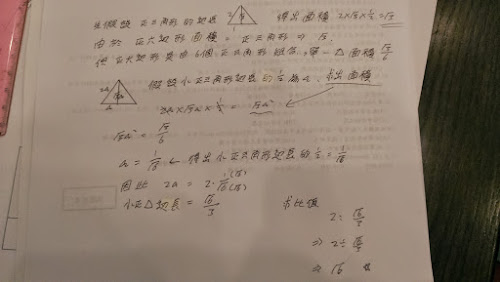 先假設 正三角形的邊長 2 得出面積 2×√3×½=√3
由於 正六邊形面積 = 正三角形 ⇒ √3
但 正六邊形是由6個正三角形組合，單一△面積 √3/6
假設小正三角形邊長的½為a，求出面積
2a × √3a × ½ = √3a²
√3a² = √3/6
a = 1/√6 ← 得出小正三角形邊長的½ = 1/√6
因此 2a = 2·1(√6)/√6(√6)
小正△邊長 = √6/3
求比值
2 : √6/3
⇒ 2÷√6/3
⇒ √6